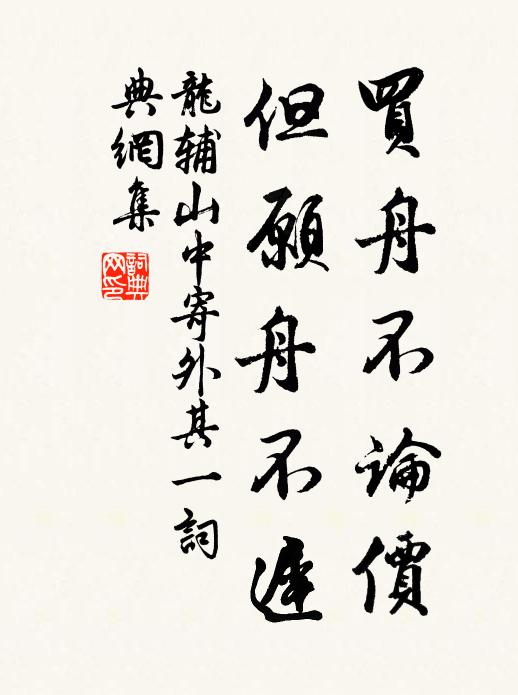 買舟不論價
但願舟不遲
龍輔山中寄外其一詞
典網集
詞典網印